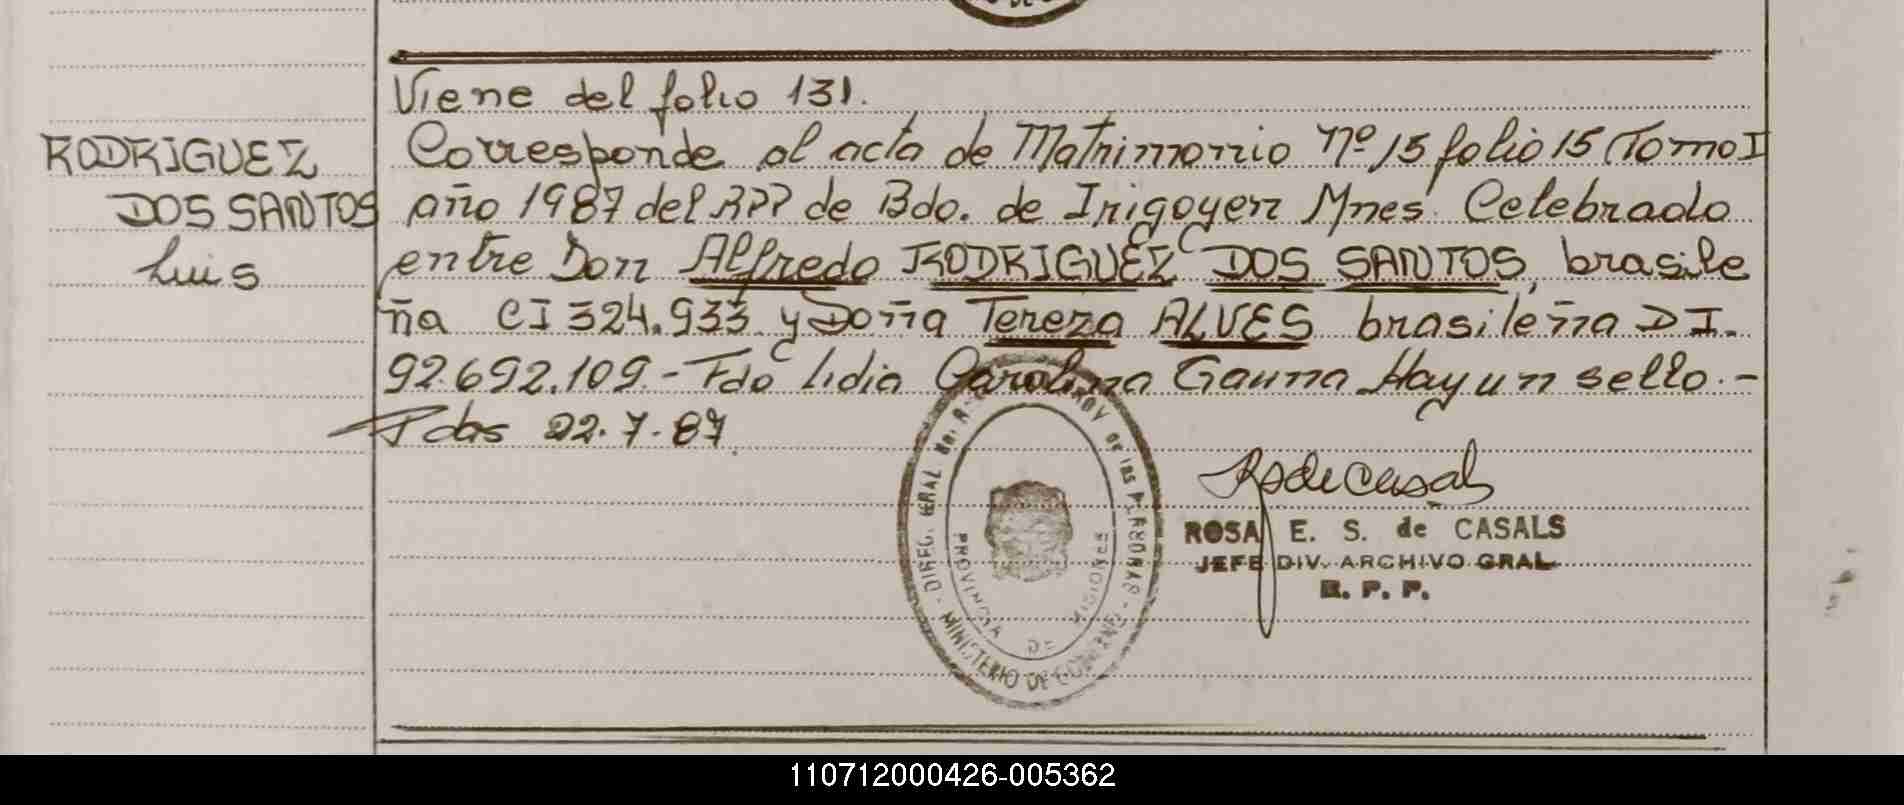 Viene del folio 131.
RODRIGUEZ
DOS SANTOS
Luis
Corresponde al acta de Matrimonio Nº 15 folio 15 Tomo I
año 1987 del RPP de Bdo. de Irigoyen Mnes. Celebrado
entre Don Alfredo RODRIGUEZ DOS SANTOS, brasile
ña CI 324.933 y Doña Tereza ALVES brasileña D I.
92.692.109.- Fdo Lidia Carolina Gauna Hay un sello.-
Pdas 22.7.87.
ROSA E. S. de CASALS
JEFE DIV. ARCHIVO GRAL
R. P. P.
PROVINCIA DE MISIONES
MINISTERIO DE GOBIERNO
110712000426-005362